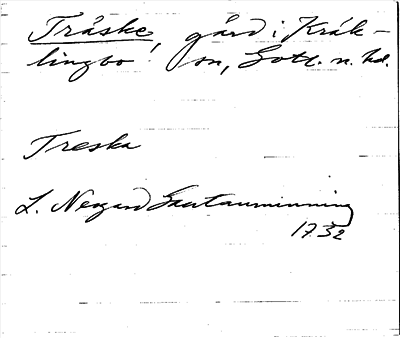 Träske, gård i Kräk-
lingbo sn, Gotl. n. hd.
Treska
L. Negard Skattauminning
1732